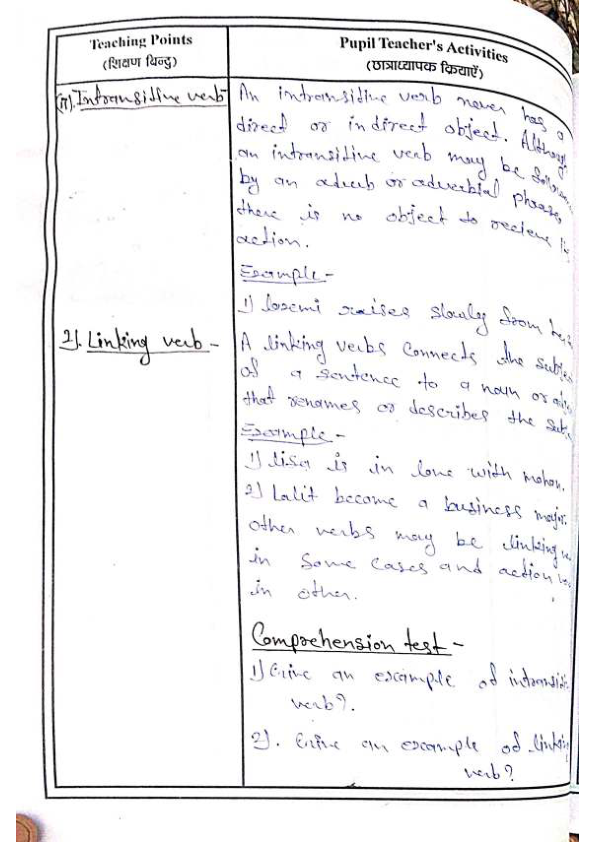 Teaching Points
(शिक्षण बिन्दु)
Pupil Teacher's Activities
(छात्राध्यापक क्रियाएँ)
(ii). Intransitive verb
An intransitive verb never has a
direct or indirect object. Although
an intransitive verb may be
by an adverb or adverbial phrases,
there is no object to recieve
action.
Example -
1) raises slowly from
2). Linking verb -
A linking verbs connects the
of a sentence to a noun or
that renames or describes the
Example -
1) lisa is in love with mohan.
2) Lalit become a business major.
Other verbs may be linking
in some cases and action
in other.
Comprehension test -
1) Give an example of
verb?.
2). Give an example of
verb?